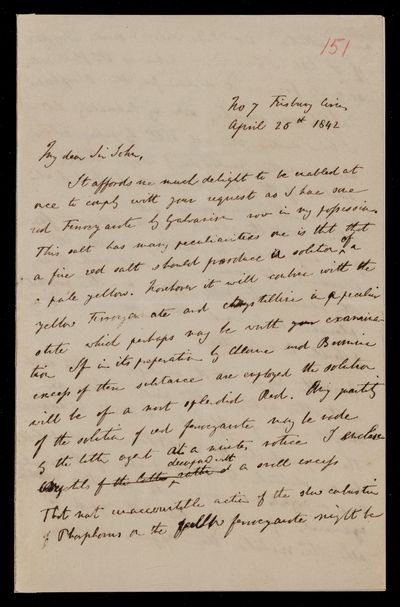 151
No 7 Finsbury Circus
April 26th 1842
My dear Sir John,
It affords me much delight to be enabled at
once to comply with your request as I have some
red Ferrocyanate by Galvanism now in my possession.
This salt has many peculiarities one is that that
a fine red salt should produce a solution of a
a pale yellow. Moreover it will combine with the
yellow Ferrocyanate and chrystallise in a peculiar
state which perhaps may be worth your examina-
tion If in its preparation by Chlorine and Bromine
excess of these substances are employed the solution
will be of a most splendid Red. Any quantity
of the solution of red ferrocyanate may be made
by the latter agent at a minutes notice I enclose
Crystals of the latter with a small excess
That most unaccountable action of the slow combustion
of Phosphorus on the yellow ferrocyanate might be